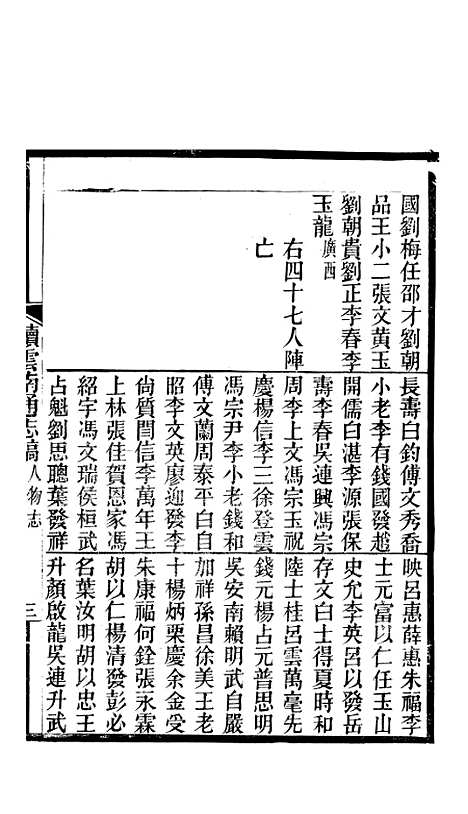 國劉梅任邵才劉朝
品王小二張文黄玉
劉朝貴劉正李春李
玉龍廣西
右四十七人陣
亡
長壽白鈞傅文秀喬
小老李有錢國發趙
開儒白湛李源張保
壽李春吳連興馮宗
周李上文馮宗玉祝
慶楊信李三徐登雲
馮宗尹李小老錢和
傅文蘭周泰平白自
昭李文英廖迎發李
尙質閆信李萬年王
上林張佳賀恩家馮
紹宇馮文瑞侯桓武
占魁劉思聰葉發祥
映呂惠薛惠朱福李
士元富以仁任玉山
史允李英呂以發岳
存文白士得夏時和
陸士桂呂雲萬毫先
錢元楊占元普思明
吳安南賴明武自嚴
加祥孫昌徐美王老
十楊炳栗慶余金受
朱康福何銓張永霖
胡以仁楊清發彭必
名葉汝明胡以忠王
升顏啟龍吳連升武
續雲南通志稿人物志
三